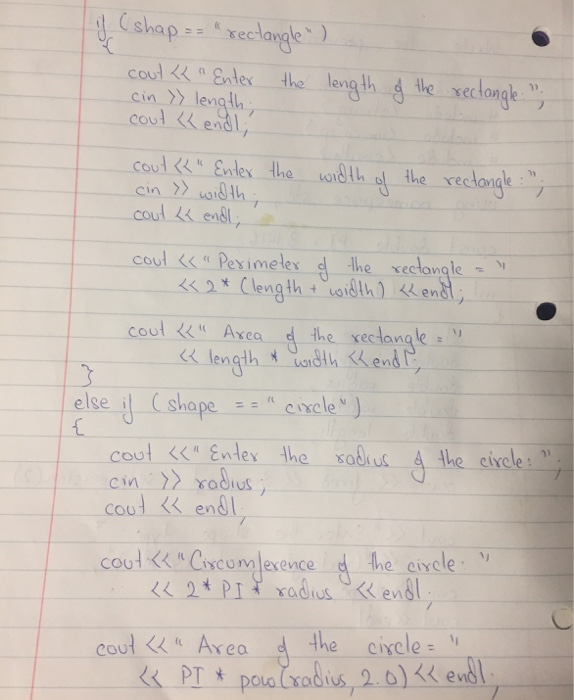 if (shap == "rectangle")
{
cout << "Enter the length of the rectangle: ";
cin >> length;
cout << endl;
cout << "Enter the width of the rectangle: ";
cin >> width;
cout << endl;
cout << "Perimeter of the rectangle = "
<< 2* (length + width) << endl;
cout << "Area of the rectangle = "
<< length * width << endl;
}
else if (shape == "circle")
{
cout << "Enter the radius of the circle: ";
cin >> radius;
cout << endl;
cout << "Circumference of the circle: "
<< 2* PI * radius << endl;
cout << "Area of the circle = "
<< PI * pow(radius, 2.0) << endl;